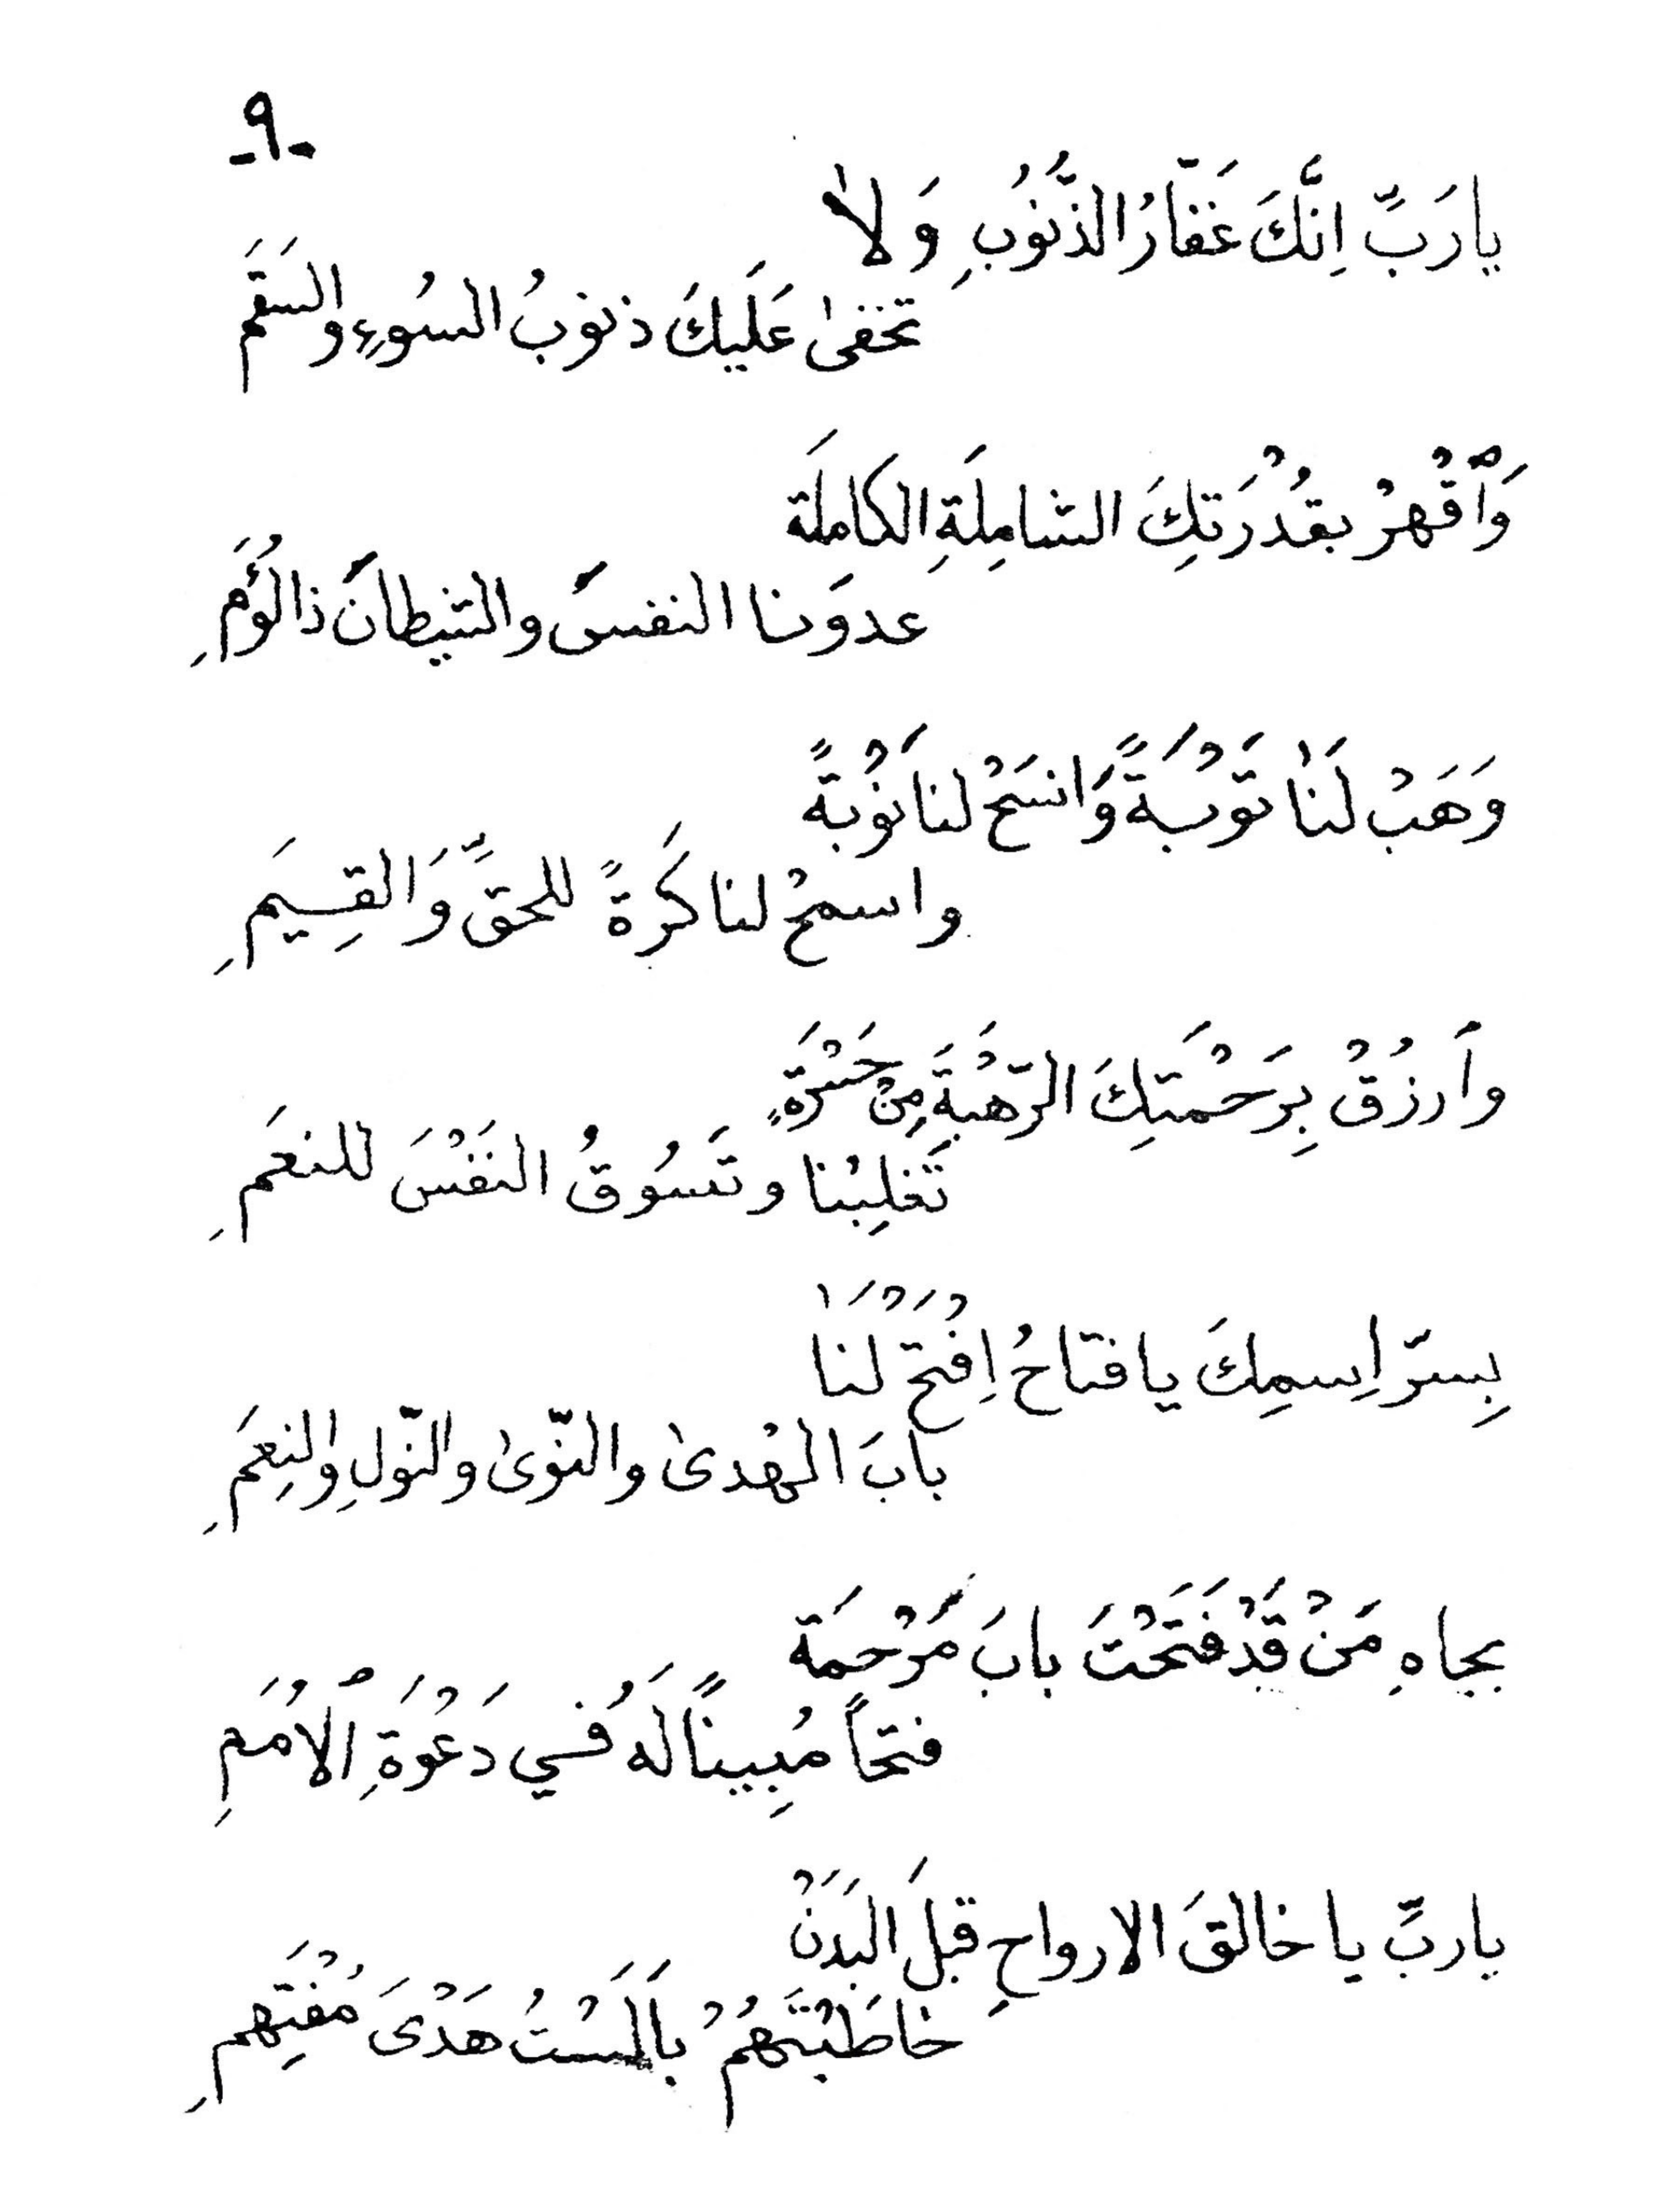 -٩-
يارَبِّ اِنَّكَ غَفّارُ الذُّنُوُبِ وَلاٰ
تخفىٰ عَلَيكَ ذنوبُ السُوءِ والسَقَمَ
وَاْقْهِرْ بقُدْرَتِكَ الشامِلَةِ الكامِلَة
عدوَنا النفسَ والشيطانَ ذا لُؤَمِ
وَهَبْ لَنٰا تَوْبَةً وَانسَخْ لنا نَوْبةً
واسمحْ لنا كَرةً للحقِّ وَالقِسِيَمِ
وأرزُقْ بِرَحْمَتِكَ الرّهْبَةَ مِنْ حَسْرَةٍ
تَغلِبْنا وتَسُوقُ النَفْسَ للنعَمِ
بِسرّ اِسمِكَ يا فتاحُ اِفْتَحْ لَنٰا
بابَ الهُدىٰ والتّوىٰ والنّولِ والنِعَمِ
بجاهِ مَنْ قَدْ فَتَحْتَ بابَ مَرْحمَة
فتحاً مُبِيناً لَهُ في دَعْوَةِ الْاُمَمِ
ياربِّ يا خالقَ الارواحِ قبلَ البَدَنْ
خاطَبْتَهُمْ بأَلَسْتُ هَدْىَ مُفْتَهِمِ